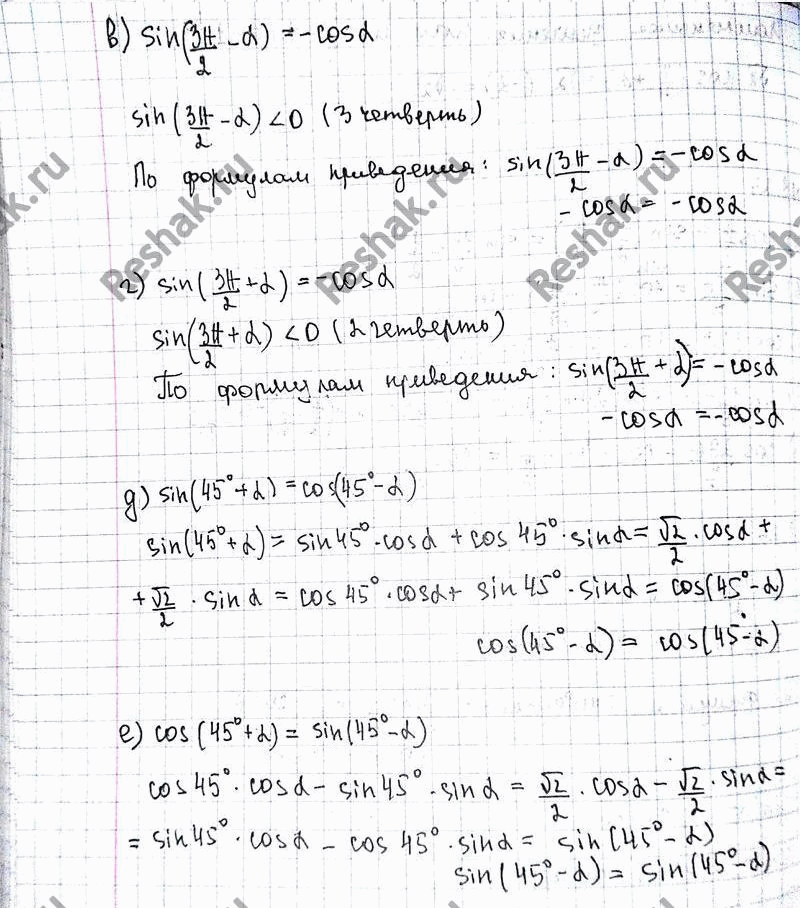 в) sin(3π/2 - α) = -cosα
sin(3π/2 - α) < 0 (3 четверть)
По формулам приведения: sin(3π/2 - α) = -cosα
- cosα = - cosα
г) sin(3π/2 + α) = -cosα
sin(3π/2 + α) < 0 (2 четверть)
По формулам приведения: sin(3π/2 + α) = - cosα
- cosα = - cosα
д) sin(45° + α) = cos(45° - α)
sin(45° + α) = sin45° · cosα + cos 45° · sinα = √2/2 · cosα +
+ √2/2 · sinα = cos 45° · cosα + sin 45° · sinα = cos(45° - α)
cos(45° - α) = cos(45° - α)
е) cos(45° + α) = sin(45° - α)
cos45° · cosα - sin45° · sinα = √2/2 · cosα - √2/2 · sinα =
= sin45° · cosα - cos 45° · sinα = sin(45° - α)
sin(45° - α) = sin(45° - α)
Reshak.ru
Reshak.ru
Reshak.ru
Reshak.ru